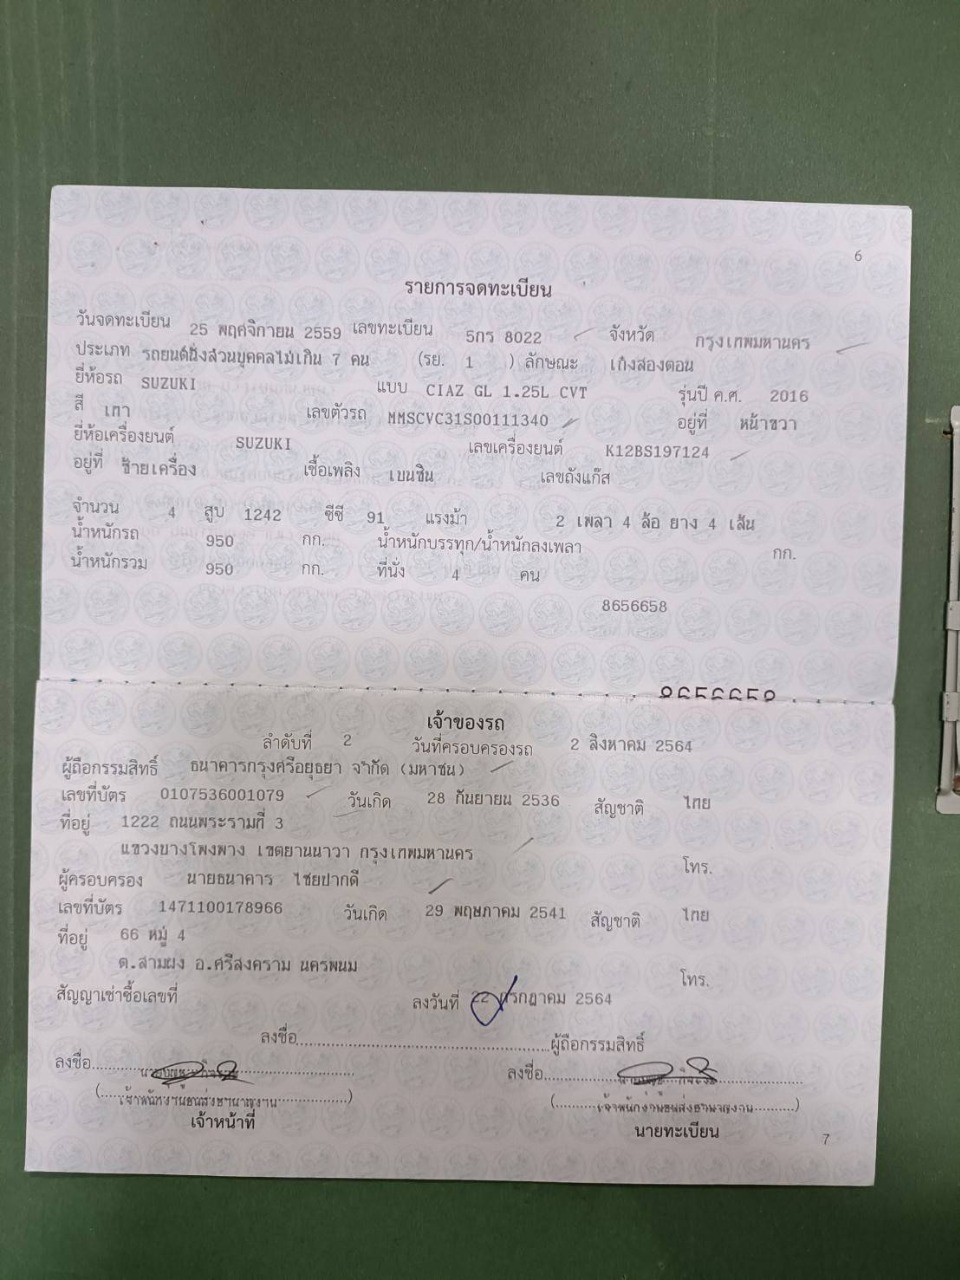 6
รายการจดทะเบียน
วันจดทะเบียน 25 พฤศจิกายน 2559 เลขทะเบียน 5กร 8022 จังหวัด กรุงเทพมหานคร
ประเภท รถยนต์นั่งส่วนบุคคลไม่เกิน 7 คน (รย. 1 ) ลักษณะ เก๋งสองตอน
ยี่ห้อรถ SUZUKI แบบ CIAZ GL 1.25L CVT รุ่นปี ค.ศ. 2016
สี เทา เลขตัวรถ MMSCVC31S00111340 อยู่ที่ หน้าขวา
ยี่ห้อเครื่องยนต์ SUZUKI เลขเครื่องยนต์ K12BS197124
อยู่ที่ ซ้ายเครื่อง เชื้อเพลิง เบนซิน เลขถังแก๊ส
จำนวน 4 สูบ 1242 ซีซี 91 แรงม้า 2 เพลา 4 ล้อ ยาง 4 เส้น
น้ำหนักรถ 950 กก. น้ำหนักบรรทุก/น้ำหนักลงเพลา กก.
น้ำหนักรวม 950 กก. ที่นั่ง 4 คน
8656658
เจ้าของรถ
ลำดับที่ 2 วันที่ครอบครองรถ 2 สิงหาคม 2564
ผู้ถือกรรมสิทธิ์ ธนาคารกรุงศรีอยุธยา จำกัด (มหาชน)
เลขที่บัตร 0107536001079 วันเกิด 28 กันยายน 2536 สัญชาติ ไทย
ที่อยู่ 1222 ถนนพระรามที่ 3
แขวงบางโพงพาง เขตยานนาวา กรุงเทพมหานคร
โทร.
ผู้ครอบครอง นายธนาคาร ไชยปากดี
เลขที่บัตร 1471100178966 วันเกิด 29 พฤษภาคม 2541 สัญชาติ ไทย
ที่อยู่ 66 หมู่ 4
ต.สามผง อ.ศรีสงคราม นครพนม
โทร.
สัญญาเช่าซื้อเลขที่ ลงวันที่ 22 กรกฎาคม 2564
ลงชื่อ ผู้ถือกรรมสิทธิ์
ลงชื่อ ลงชื่อ
(เจ้าพนักงานขนส่งชำนาญงาน) (เจ้าพนักงานขนส่งชำนาญงาน)
เจ้าหน้าที่ นายทะเบียน
7